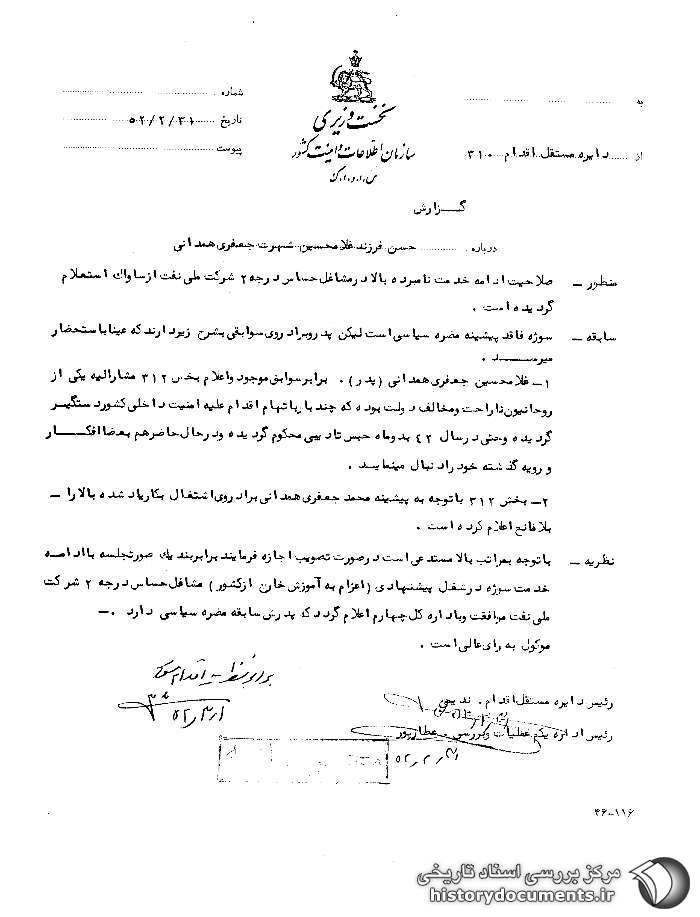 شماره
به
نخست وزیری
تاریخ ۵۲/۲/۳۱
سازمان اطلاعات و امنیت کشور
پیوست
از دایره مستقل اقدام ۳۱۰
س.ا.و.ا.ک
گزارش
درباره حسن فرزند غلامحسین شهرت جعفری همدانی
منظور ــ صلاحیت ادامه خدمت نامبرده بالا در مشاغل حساس درجه ۲ شرکت ملی نفت از ساواک استعلام
گردیده است .
سابقه ــ سوژه فاقد پیشینه مضره سیاسی است لیکن پدر و برادر وی سوابقی بشرح زیر دارند که عینا باستحضار
میرسد .
۱ــ غلامحسین جعفری همدانی ( پدر ) . برابر سوابق موجود و اعلام بخش ۳۱۲ مشارالیه یکی از
روحانیون ناراحت و مخالف دولت بوده که چند بار باتهام اقدام علیه امنیت داخلی کشور دستگیر
گردیده و حتی در سال ۴۲ بدو ماه حبس تادیبی محکوم گردیده و در حال حاضر هم بعضا افکار
و رویه گذشته خود را دنبال مینماید .
۲ــ بخش ۳۱۲ باتوجه به پیشینه محمد جعفری همدانی برادر وی اشتغال بکار یاد شده بالا را ــ
بلامانع اعلام کرده است .
نظریه ــ باتوجه بمراتب بالا مستدعی است در صورت تصویب اجازه فرمایند برابر بند یک صورتجلسه با ادامه
خدمت سوژه در شغل پیشنهادی ( اعزام به آموزش خارج از کشور ) مشاغل حساس درجه ۲ شرکت
ملی نفت موافقت و باداره کل چهارم اعلام گردد که پدرش سابقه مضره سیاسی دارد .ــ
موکول به رای عالی است .
اقدام شود
رئیس دایره مستقل اقدام . ندیمی
رئیس اداره یکم عملیات و بررسی . عطارپور
۴۶-۱۱۶
مرکز بررسی اسناد تاریخی
historydocuments.ir